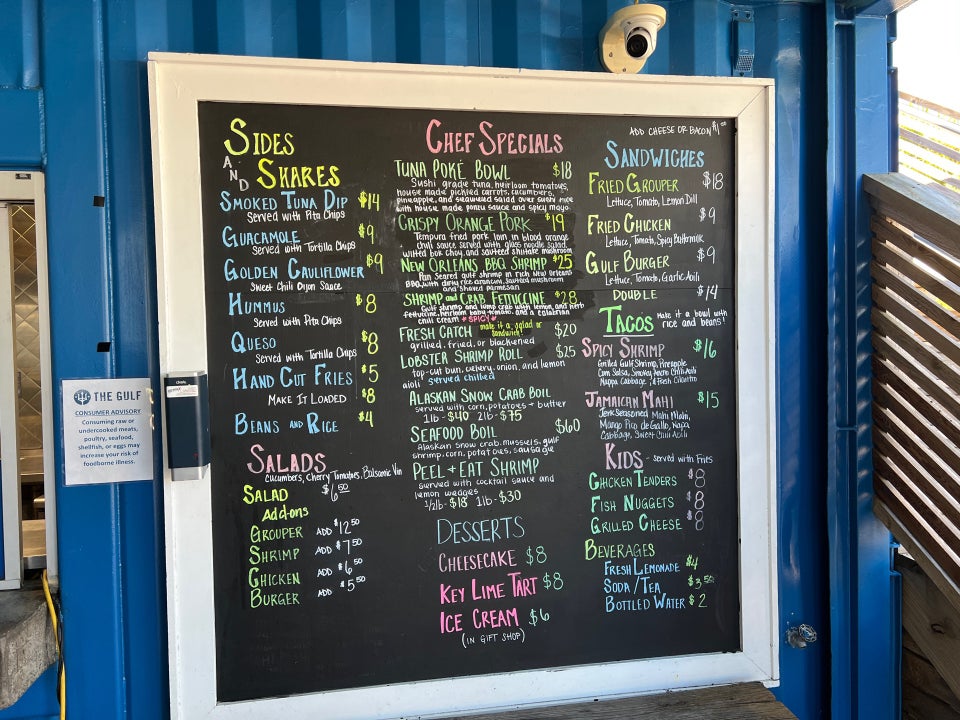 SIDES
AND
SHARES
SMOKED TUNA DIP $14
Served with Pita Chips
GUACAMOLE $9
served with Tortilla Chips
GOLDEN CAULIFLOWER $9
Sweet Chili Dijon Sauce
HUMMUS $8
Served with Pita Chips
QUESO $8
Served with Tortilla Chips
HAND CUT FRIES $5
MAKE IT LOADED $8
BEANS AND RICE $4
SALADS
Cucumbers, Cherry Tomatoes, Balsamic Vin
$6.50
SALAD
Add-ons
GROUPER ADD $12.50
SHRIMP ADD $7.50
CHICKEN ADD $6.50
BURGER ADD $5.50
CHEF SPECIALS
TUNA POKÉ BOWL $18
Sushi grade tuna, heirloom tomatoes,
house made pickled carrots, cucumbers,
pineapple, and seaweed salad over sushi rice
with house made ponzu sauce and spicy mayo.
CRISPY ORANGE PORK $19
Tempura fried pork loin in blood orange
chili sauce served with glass noodle salad,
wilted bok choy, and sauteed shiitake mushroom
NEW ORLEANS BBQ SHRIMP $25
Pan seared gulf shrimp in rich New Orleans
BBQ with dirty rice arancini, sauteed mushroom
and shaved parmesan
SHRIMP AND CRAB FETTUCCINE $28
Gulf shrimp and lump crab with lemon, and herb
fettuccine, heirloom baby tomato, and a calabrian
chili cream *SPICY*
FRESH CATCH make it a salad or $20
sandwich!
grilled, fried, or blackened
LOBSTER SHRIMP ROLL $25
top-cut bun, celery, onion, and lemon
aioli served chilled
ALASKAN SNOW CRAB BOIL
served with corn, potatoes + butter
1lb - $40 2lb - $75
SEAFOOD BOIL $60
Alaskan snow crab, mussels, gulf
shrimp, corn, potatoes, sausage
PEEL + EAT SHRIMP
served with cocktail sauce and
lemon wedges
1/2lb - $18 1lb - $30
DESSERTS
CHEESECAKE $8
KEY LIME TART $8
ICE CREAM $6
(IN GIFT SHOP)
ADD CHEESE OR BACON $1.00
SANDWICHES
FRIED GROUPER $18
Lettuce, Tomato, Lemon Dill
FRIED CHICKEN $9
Lettuce, Tomato, Spicy Buttermilk
GULF BURGER $9
Lettuce, Tomato, Garlic Aoili
DOUBLE $14
TACOS make it a bowl with
rice and beans!
SPICY SHRIMP $16
Grilled Gulf Shrimp, Pineapple
Corn Salsa, Smokey Ancho Chili Aoili
Nappa Cabbage, & Fresh Cilantro
JAMAICAN MAHI $15
Jerk Seasoned Mahi Mahi,
Mango Pico de Gallo, Napa
Cabbage, Sweet Chili Aoili
KIDS - served with Fries
CHICKEN TENDERS $8
FISH NUGGETS $8
GRILLED CHEESE $8
BEVERAGES
FRESH LEMONADE $4
SODA / TEA $3.50
BOTTLED WATER $2
THE GULF
CONSUMER ADVISORY
Consuming raw or
undercooked meats,
poultry, seafood,
shellfish, or eggs may
increase your risk of
foodborne illness.